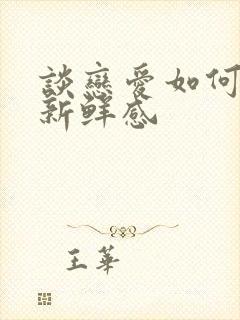 談戀愛如何
新鮮感
王華